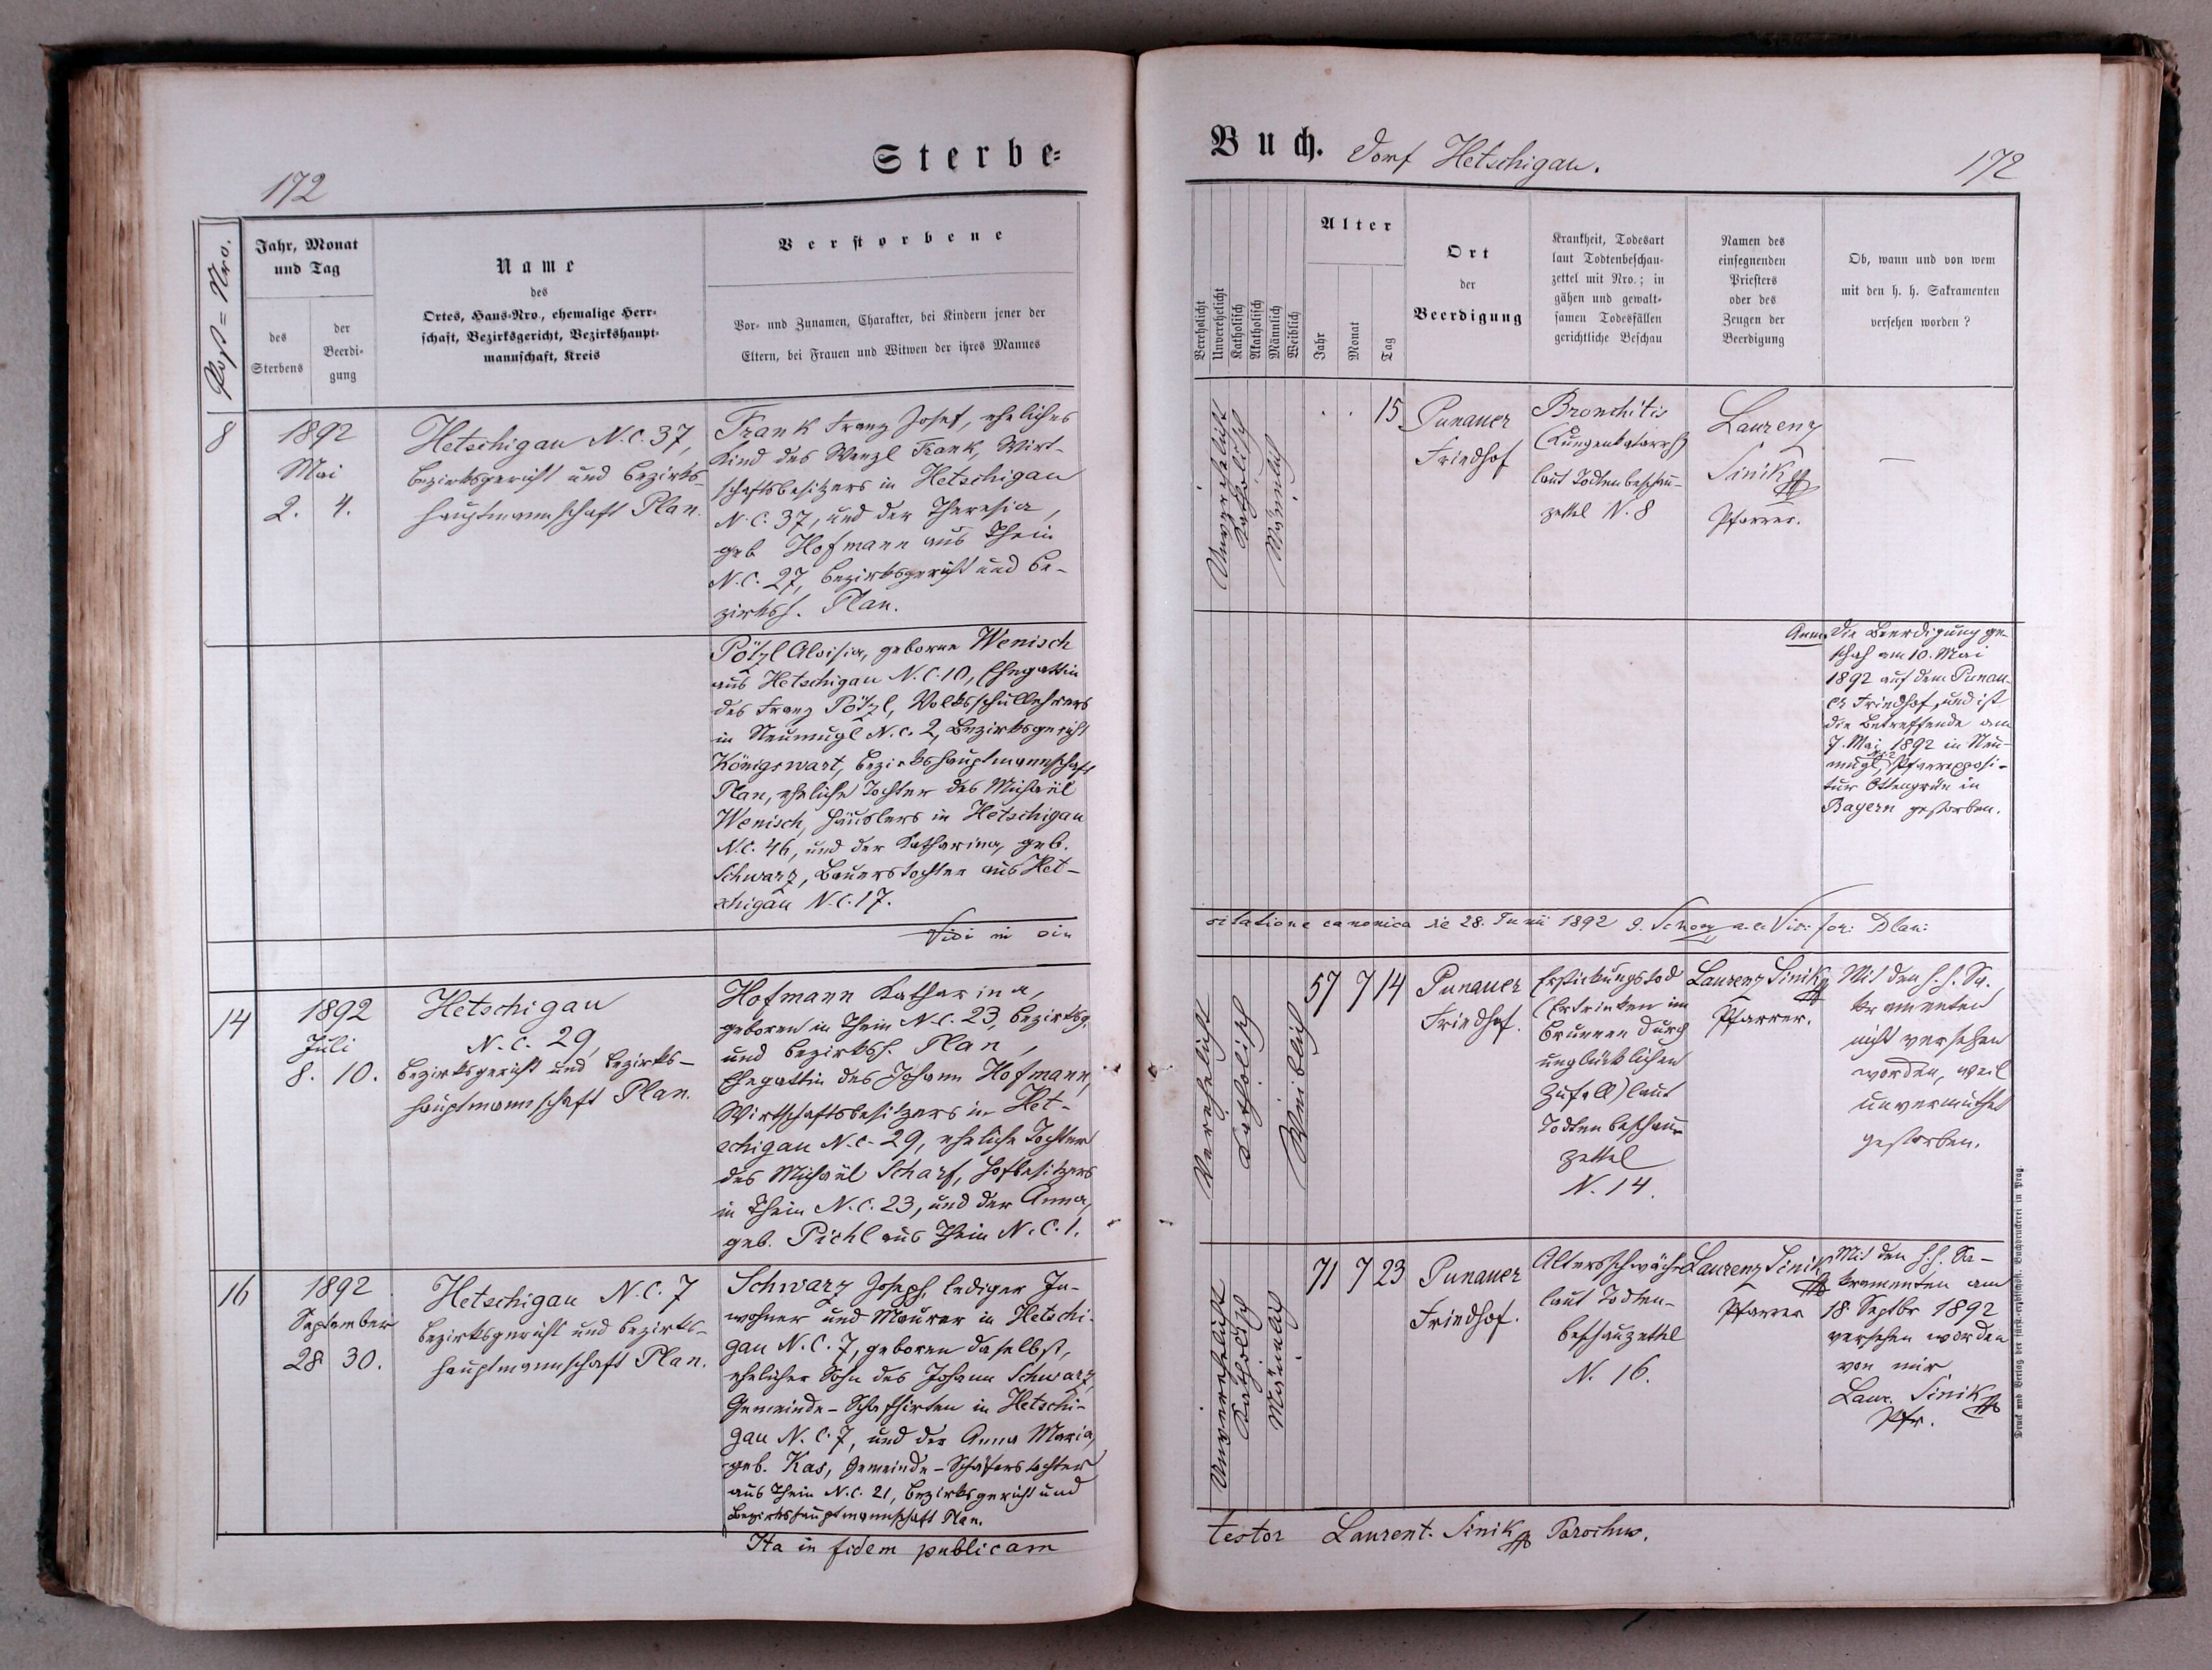 172
Sterbe-
Post-Nro.
Jahr, Monat
und Tag
des
Sterbens
der
Beerdi-
gung
Name
des
Ortes, Haus-Nro., ehemalige Herr-
schaft, Bezirksgericht, Bezirkshaupt-
mannschaft, Kreis
Verstorbene
Vor- und Zunamen, Charakter, bei Kindern jener der
Eltern, bei Frauen und Witwen der ihres Mannes
8
1892
Mai
2. 4.
Hetschigau N.C. 37,
Bezirksgericht und Bezirks-
hauptmannschaft Plan.
Frank Franz Josef, eheliches
Kind des Wenzl Frank, Wirt-
schaftsbesitzers in Hetschigau
N.C. 37, und der Theresia,
geb. Hofmann aus Thein
N.C. 27, Bezirksgericht und Be-
zirksh. Plan.
Pötzl Aloisia, geborne Wenisch
aus Hetschigau N.C. 10, Ehegattin
des Franz Pötzl, Volksschullehrers
in Neumugl N.C. 2, Bezirksgericht
Königswart, Bezirkshauptmannschaft
Plan, eheliche Tochter des Michael
Wenisch, Häuslers in Hetschigau
N.C. 46, und der Katharina, geb.
Schwarz, Bauerstochter aus Het-
schigau N.C. 17.
Vidi in
14
1892
Juli
8. 10.
Hetschigau
N.C. 29,
Bezirksgericht und Bezirks-
hauptmannschaft Plan.
Hofmann Katharina,
geboren in Thein N.C. 23, Bezirksg.
und Bezirksh. Plan,
Ehegattin des Johann Hofmann,
Wirtschaftsbesitzers in Het-
schigau N.C. 29, eheliche Tochter
des Michael Scharf, Hofbesitzers
in Thein N.C. 23, und der Anna,
geb. Pichl aus Thein N.C. 1.
16
1892
September
28 30.
Hetschigau N.C. 7
Bezirksgericht und Bezirks-
hauptmannschaft Plan.
Schwarz Joseph, lediger In-
wohner und Maurer in Hetschi-
gau N.C. 7, geboren daselbst,
ehelicher Sohn des Johann Schwarz,
Gemeinde-Schafhirten in Hetschi-
gau N.C. 7, und der Anna Maria,
geb. Kas, Gemeinde-Schäferstochter
aus Thein N.C. 21, Bezirksgericht und
Bezirkshauptmannschaft Plan.
Ita in fidem publicam
Buch. Dorf Hetschigau.
172
Verehelicht
Unverehelicht
Katholisch
Akatholisch
Männlich
Weiblich
Alter
Jahr
Monat
Tag
Ort
der
Beerdigung
Krankheit, Todesart
laut Todtenbeschau-
zettel mit Nro.; in
gähen und gewalt-
samen Todesfällen
gerichtliche Beschau
Namen des
einsegnenden
Priesters
oder des
Zeugen der
Beerdigung
Ob, wann und von wem
mit den h. h. Sakramenten
versehen worden?
Unverehelicht
Katholisch
Männlich
. . 15
Punauer
Friedhof
Bronchitis
(Lungenkatarrh)
laut Todtenbeschau-
zettel N. 8
Laurenz
Sinik
Pfarrer.
—
Anm. Die Beerdigung ge-
schah am 10. Mai
1892 auf dem Punau-
er Friedhof, und ist
die Betreffende am
7. Mai 1892 in Neu-
mugl, Pfarrexposi-
tur Ottengrün in
Bayern gestorben.
visitatione canonica die 28. Junii 1892
Verehelicht
Katholisch
Weiblich
57 7 14
Punauer
Friedhof.
Erstickungstod
(Ertrinken im
Brunnen durch
unglücklichen
Zufall) laut
Todtenbeschau-
zettel
N. 14.
Laurenz Sinik
Pfarrer.
Mit den h.h. Sa-
kramenten
nicht versehen
worden, weil
unvermuthet
gestorben.
Unverehelicht
Katholisch
Männlich
71 7 23
Punauer
Friedhof.
Altersschwäche
laut Todten-
beschauzettel
N. 16.
Laurenz Sinik
Pfarrer
Mit den h.h. Sa-
kramenten am
18 Septbr 1892
versehen worden
von mir
Laur. Sinik
Pfr.
testor Laurent. Sinik Parochus.
Druck und Verlag der fürst-erzbischöfl. Buchdruckerei in Prag.